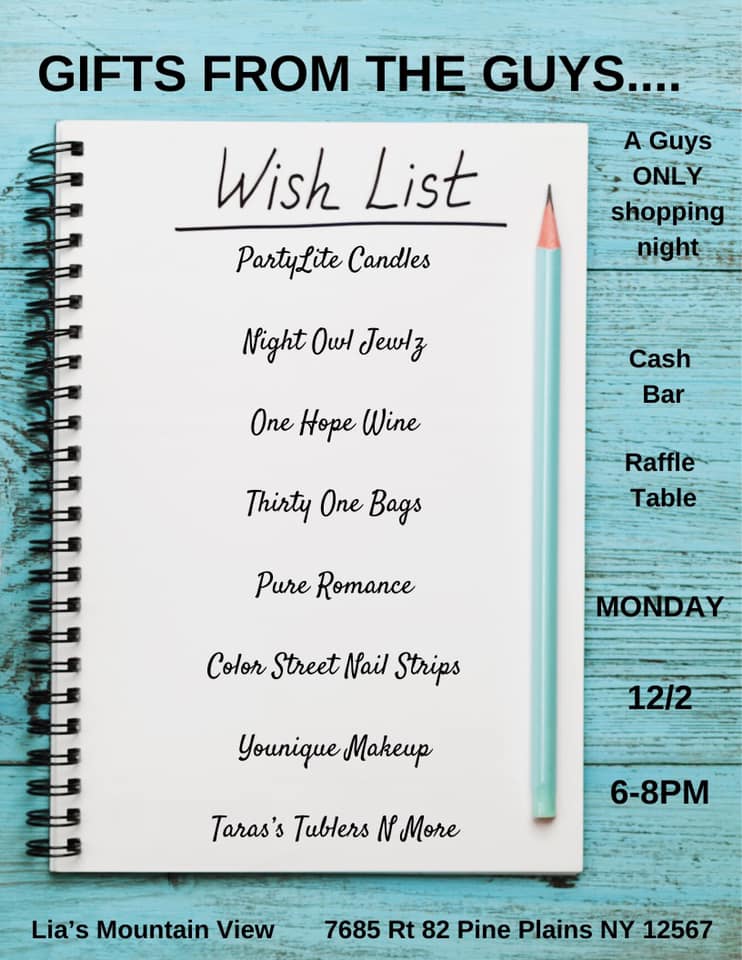 GIFTS FROM THE GUYS....
Wish List
PartyLite Candles
Night Owl Jewlz
One Hope Wine
Thirty One Bags
Pure Romance
Color Street Nail Strips
Younique Makeup
Taras's Tublers N More
A Guys
ONLY
shopping
night
Cash
Bar
Raffle
Table
MONDAY
12/2
6-8PM
Lia's Mountain View 7685 Rt 82 Pine Plains NY 12567